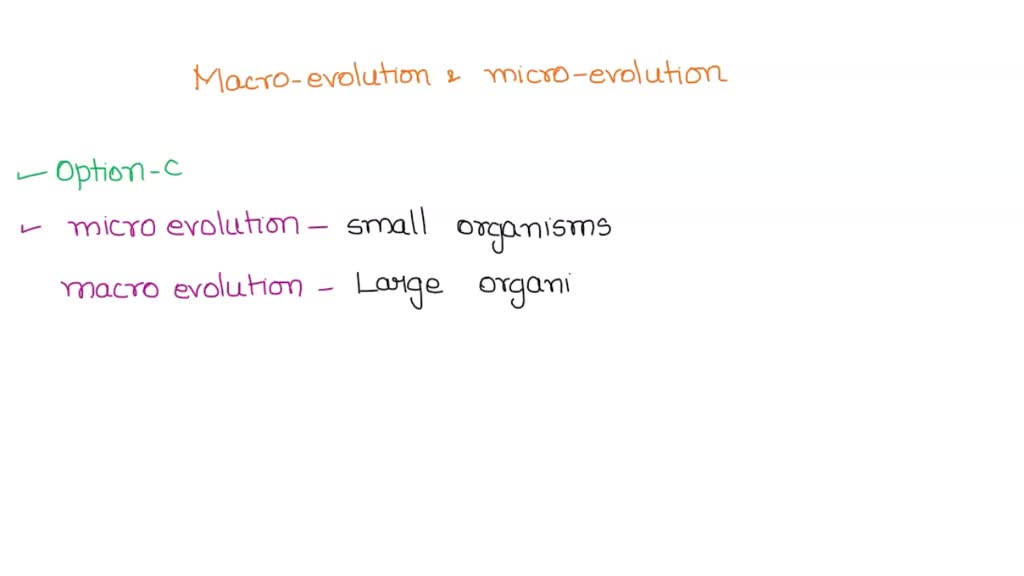 Macro-evolution & micro-evolution
Option-C
micro evolution - small organisms
macro evolution - Large organi